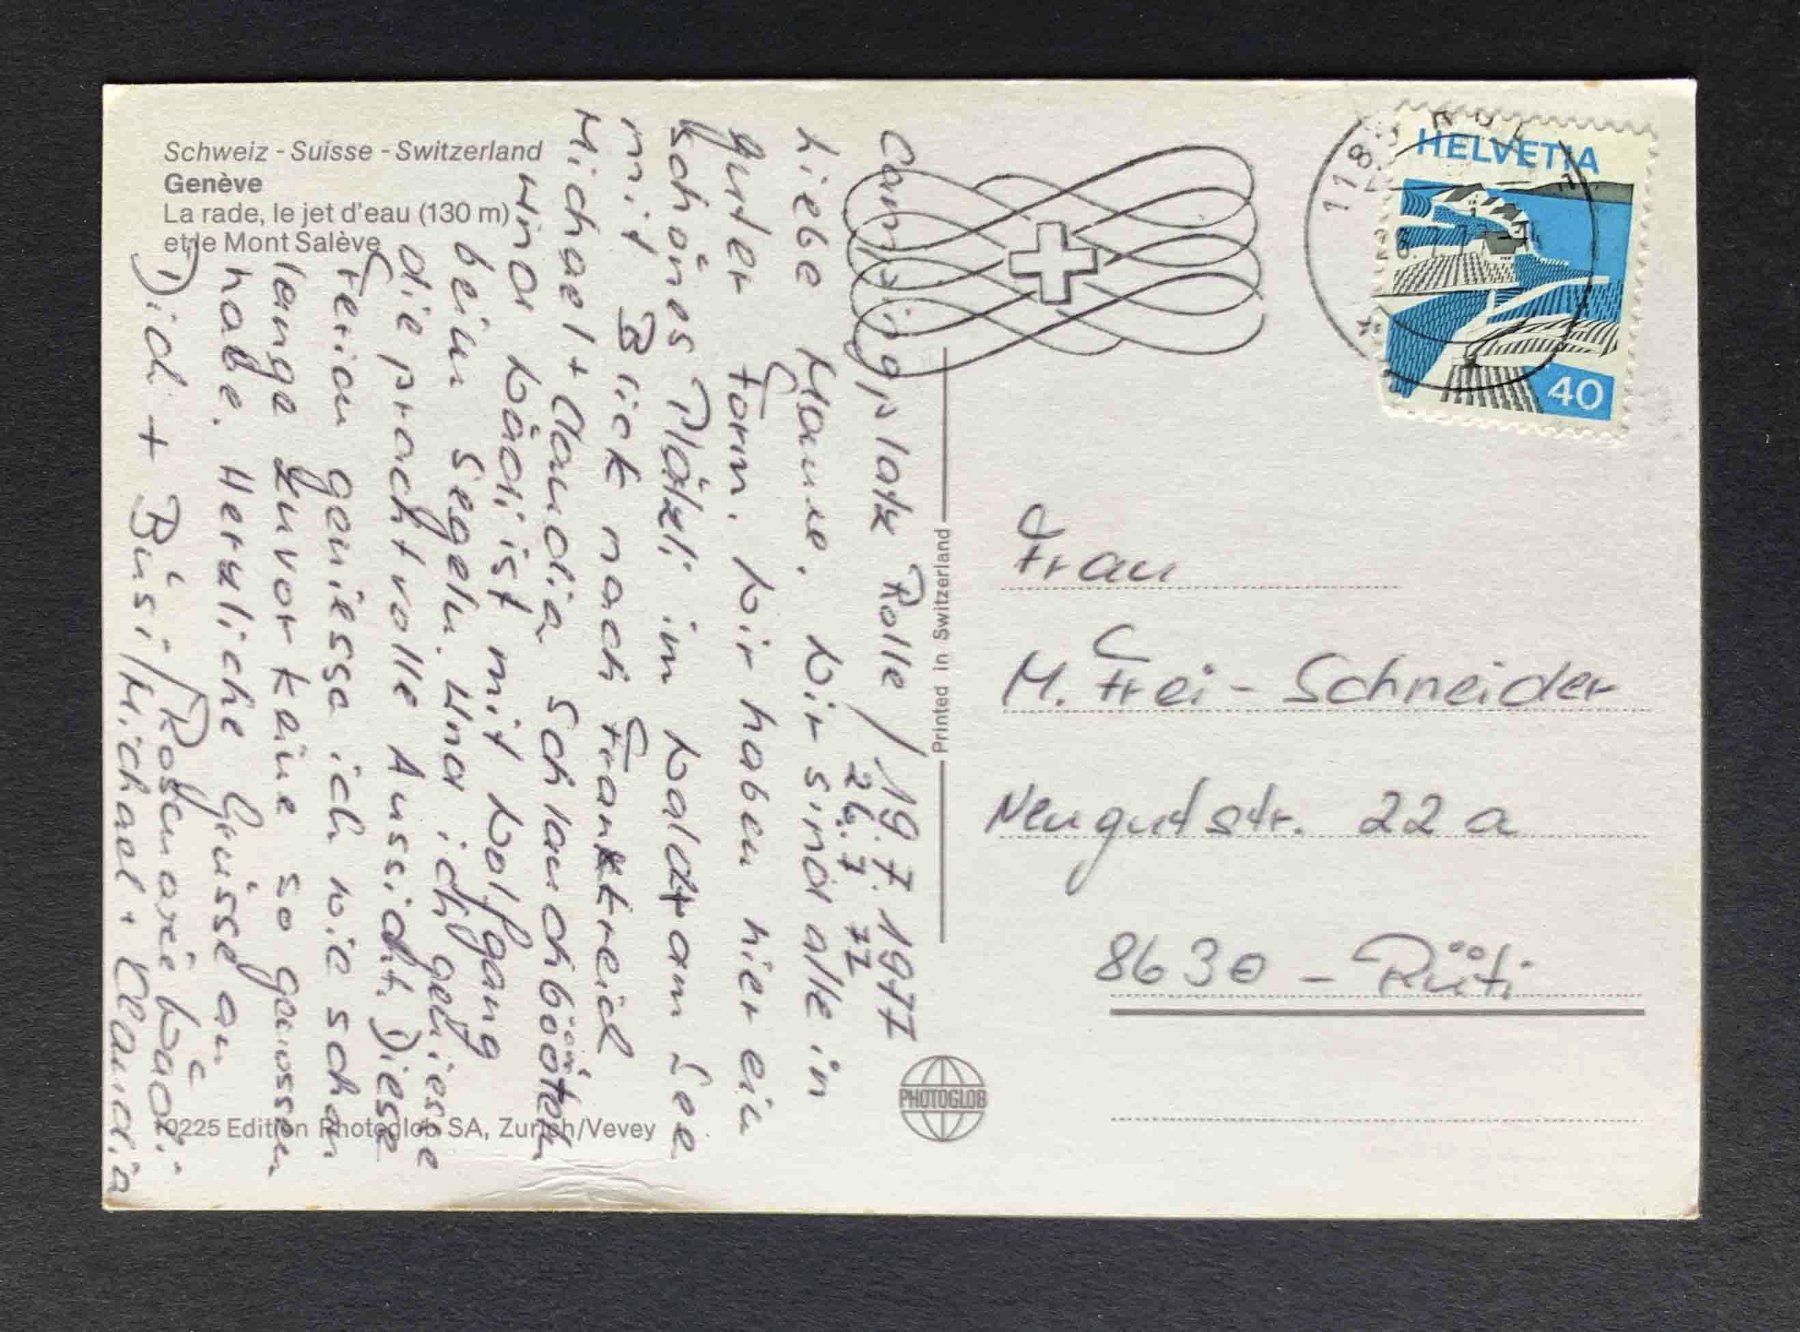 Schweiz - Suisse - Switzerland
Genève
La rade, le jet d'eau (130 m)
et le Mont Salève
Campingplatz Rolle / 19.7.1977
26.7.77
Liebe Mame. Wir sind alle in
guter Form. Wir haben hier ein
schönes Plätzli im Wald + am See
mit Blick nach Frankreich
Michael + Claudia schlauchböötlen
und Wädi ist mit Wolfgang
beim Segeln. Und ich geniesse
die prachtvolle Aussicht. Diese
Ferien geniesse ich wie schon
lange zuvor keine so genossen
habe. Herzliche Grüsse an
Dich + Büsi / Rosmarie Wädi
Michael + Claudia
0225 Edition Photoglob SA, Zurich/Vevey
Printed in Switzerland
PHOTOGLOB
118
HELVETIA
40
Frau
M. Frei - Schneider
Neugutstr. 22 a
8630 - Rüti